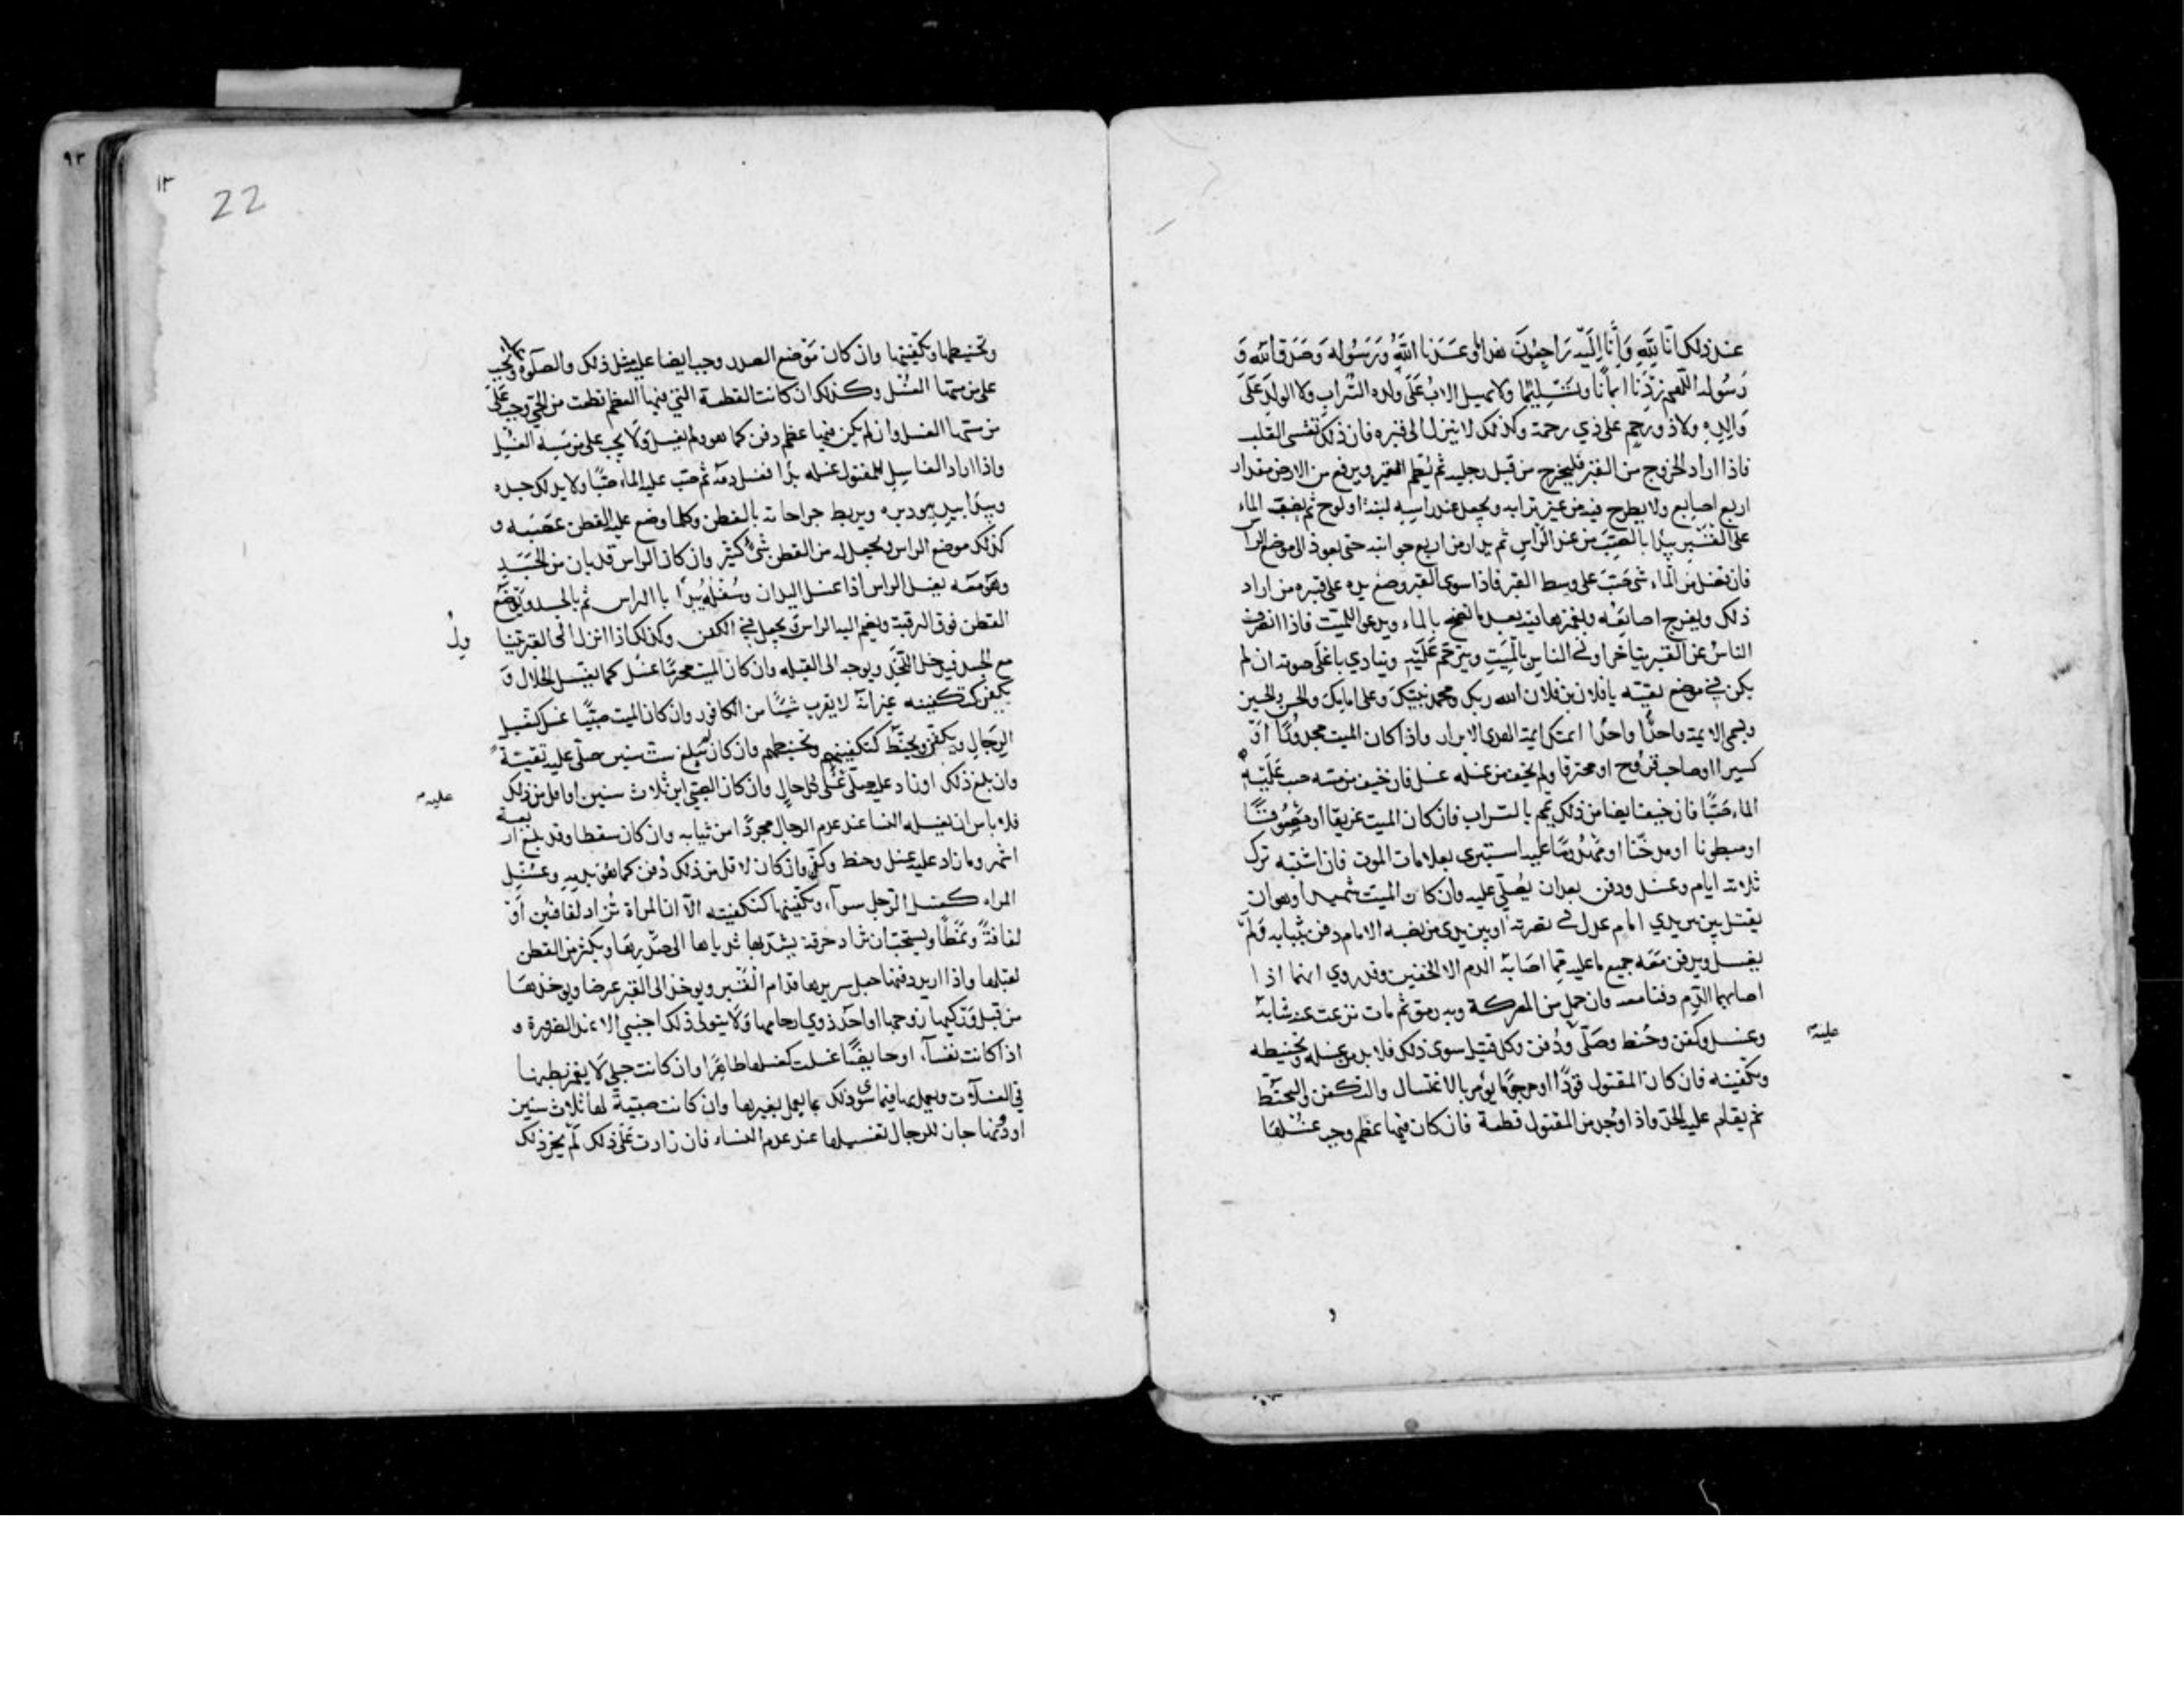 عند ذلك انا لله وانا اليه راجعون هذا ما وعدنا الله ورسوله وصدق الله و
رسوله اللهم زدنا ايمانا وتسليما ولا يهيل الاب على ولده التراب ولا الولد على
والده ولا ذو رحم على ذي رحمه وكذلك لا ينزل الى قبره فان ذلك تقسى القلب
فاذا اراد الخروج من القبر فليخرج من قبل رجليه ثم يطم القبر ويرفع من الارض مقدار
اربع اصابع ولا يطرح فيه من غير ترابه ويجعل عند راسه لبنة او لوح ثم يصب الماء
على القبر يبدا بالصب من عند الراس ثم يدار من اربع جوانبه حتى يعود الى موضع الرا
فان فضل من الماء شى صب على وسط القبر فاذا سوى القبر وضع يده على قبره من اراد
ذلك ويفرج اصابعه ويغمزها فيه بعد ما نضح بالماء ويدعو للميت فاذا انصرف
الناس عن القبر يتاخر اولى الناس بالميت ويترحم عليه وينادي باعلى صوته ان لم
يكن في موضع تقيته يا فلان بن فلان الله ربك ومحمد نبيك وعلى امامك والحسن والحسين
ويسمى الايمة واحدا واحدا ايمتك ايمة الهدى الابرار واذا كان الميت مجدورا او
كسيرا او صاحب قروح او محترقا ولم يخف من غسله غسل فان خيف من مسه صب عليه
الماء صبا فان خيف ايضا من ذلك يمم بالتراب فان كان الميت غريقا او مصعوقا
او مبطونا او مدخنا او مهدوما عليه استبرى بعلامات الموت فان اشتبه ترك
ثلاثة ايام وغسل ودفن بعد ان يصلي عليه وان كان الميت شهيدا وهو ان
يقتل بين يدي امام عدل في نصرته او بين يدى من نصبه الامام دفن بثيابه ولم
يغسل ويدفن معه جميع ما عليه مما اصابه الدم الا الخفين وقد روي انهما اذا
اصابهما الدم دفنا معه وان حمل من المعركة وبه رمق ثم مات نزعت عنه ثيابه
وغسل وكفن وحنط وصلى ودفن وكل قتيل سوى ذلك فلا بد من غسله وتحنيطه
عليه
وتكفينه فان كان المقتول قودا او مرجوما يؤمر بالاغتسال والتكفن والتحنط
ثم يقام عليه الحد واذا وجد من المقتول قطعة فان كان فيها عظم وجب غسلها
٩٣
١٢
22
وتحنيطها وتكفينها وان كان موضع الصدر وجب ايضا عليه مثل ذلك والصلوة ويجب
على من مسها الغسل وكذلك ان كانت القطعة التي فيها العظم قطعت من الحي وجب على
من مسها الغسل وان لم يكن فيها عظم دفن كما هو ولم يغسل ولا يجب على من مسه الغسل
واذا اراد الغاسل للمقتول غسله بدا فغسل دمه ثم صب عليه الماء صبا ولا يدلك جسده
ويبدا بيديه ودبره ويربط جراحاته بالقطن وكلما وضع عليه القطن عصبه و
كذلك موضع الراس ويجعل له من القطن شى كثير وان كان الراس قد بان من الجسد
وهو معه يغسل الراس اذا غسل اليدان وسفله يبدا بالراس ثم بالجسد ويوضع
القطن فوق الرقبة ويضم اليه الراس ويجعل في الكفن وكذلك اذا انزل الى القبر
مع الجسد فيدخل اللحد ويوجه الى القبله وان كان الميت محرما غسل كما يغسل الحلال و
يكفن كتكفينه غير انه لا يقرب شيئا من الكافور وان كان الميت صبيا غسل كغسل
الرجال ويكفن ويحنط كتكفينهم وتحنيطهم وان كان لم يبلغ ست سنين صلى عليه تقية
وان بلغ ذلك او زاد عليه صلى على كل حال وان كان الصبي ابن ثلاث سنين او اقل من ذلك
عليه
فلا باس ان يغسله النسا عند عدم الرجال مجردا من ثيابه وان كان سقطا وقد بلغ اربعة
اشهر وما زاد عليه غسل وحنط وكفن وان كان لاقل من ذلك دفن كما هو بدمه وغسل
المراه كغسل الرجل سوآء وتكفينها كتكفينه الا ان المراة تزاد لفافتين او
لفافة ونمطا ويستحب ان تزاد خرقة يشد بها ثدياها الى صدرها ويكثر من القطن
لقبلها واذا اريد دفنها جعل سريرها قدام القبر ويوخذ الى القبر عرضا وياخذها
من قبل وركيها زوجها او احد ذوي ارحامها ولا يتولى ذلك اجنبي الا عند الضرورة و
اذا كانت نفسآء او حايضا غسلت كغسلها طاهرا وان كانت حبلى لا يغمز بطنها
في الغسلات ويعمل بها فيما سوى ذلك ما يعمل بغيرها وان كانت صبية لها ثلاث سنين
او دونها جاز للرجال تغسيلها عند عدم النساء فان زادت على ذلك لم يجز ذلك